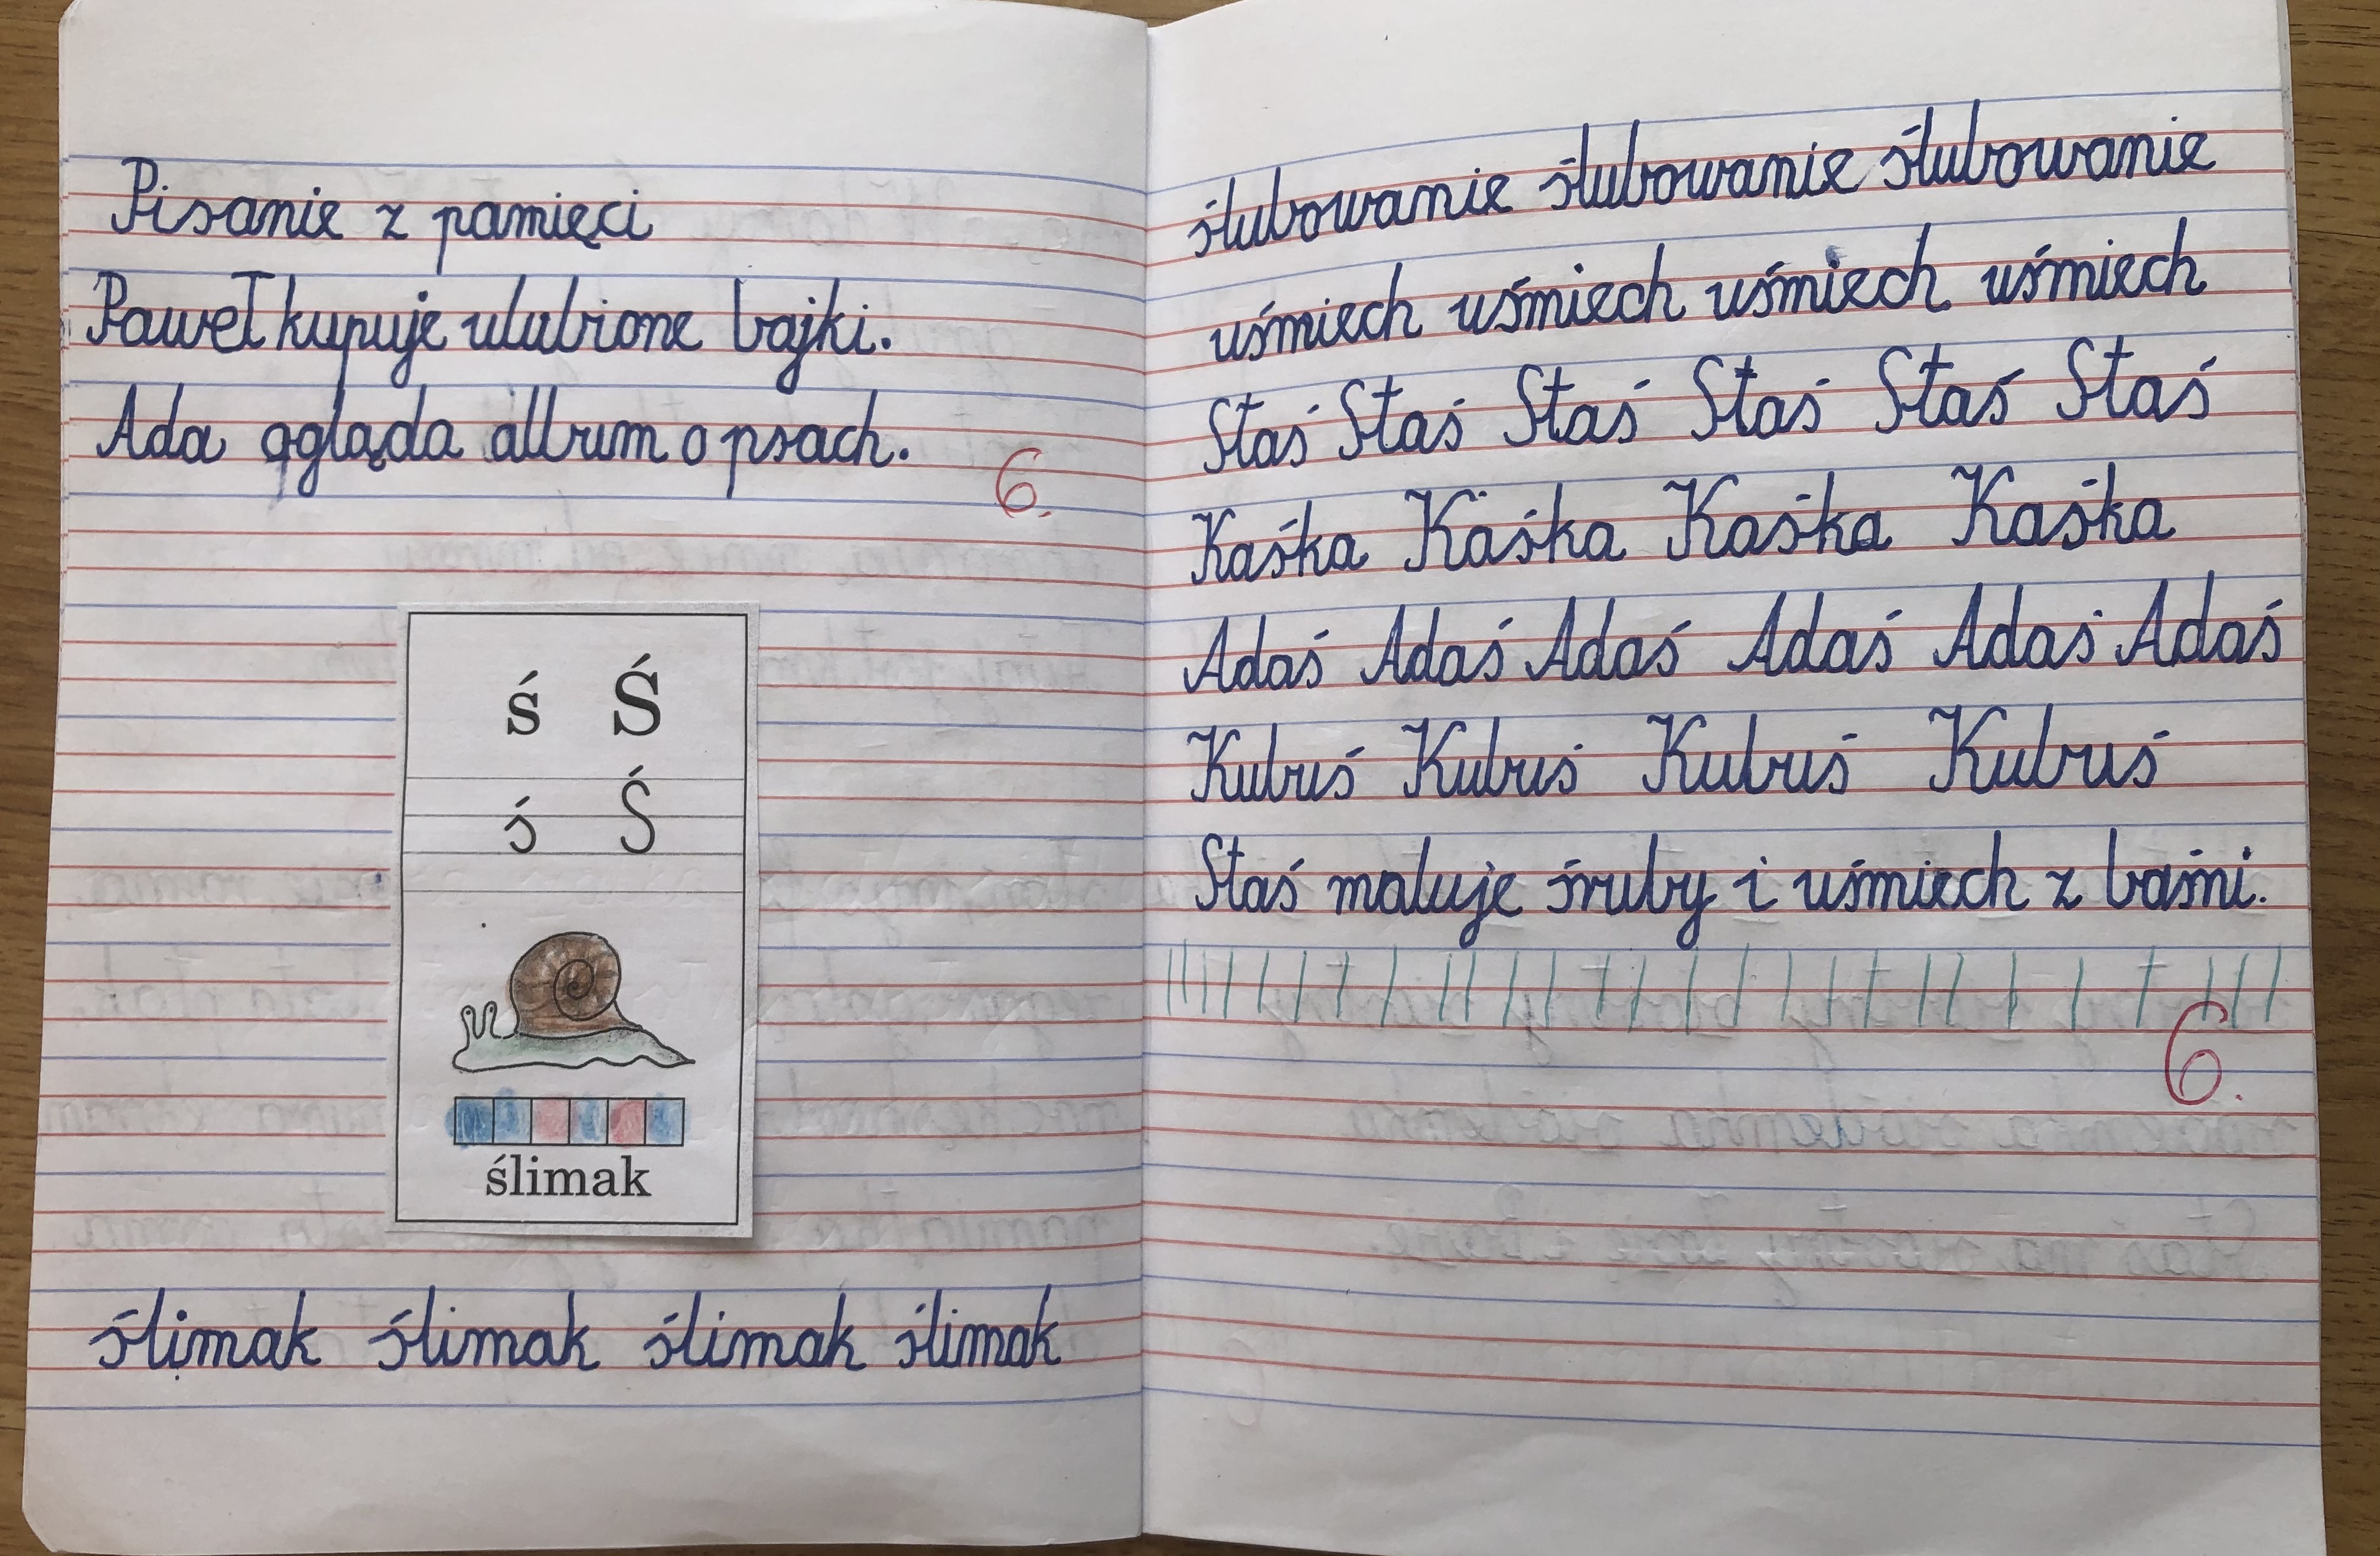 Pisanie z pamięci
Paweł kupuje ulubione bajki.
Ada ogląda album o psach.
6.
ś Ś
ś Ś
ślimak
ślimak ślimak ślimak ślimak
ślubowanie ślubowanie ślubowanie
uśmiech uśmiech uśmiech uśmiech
Staś Staś Staś Staś Staś Staś
Kaśka Kaśka Kaśka Kaśka
Adaś Adaś Adaś Adaś Adaś Adaś
Kubuś Kubuś Kubuś Kubuś
Staś maluje śruby i uśmiech z baśni.
6.